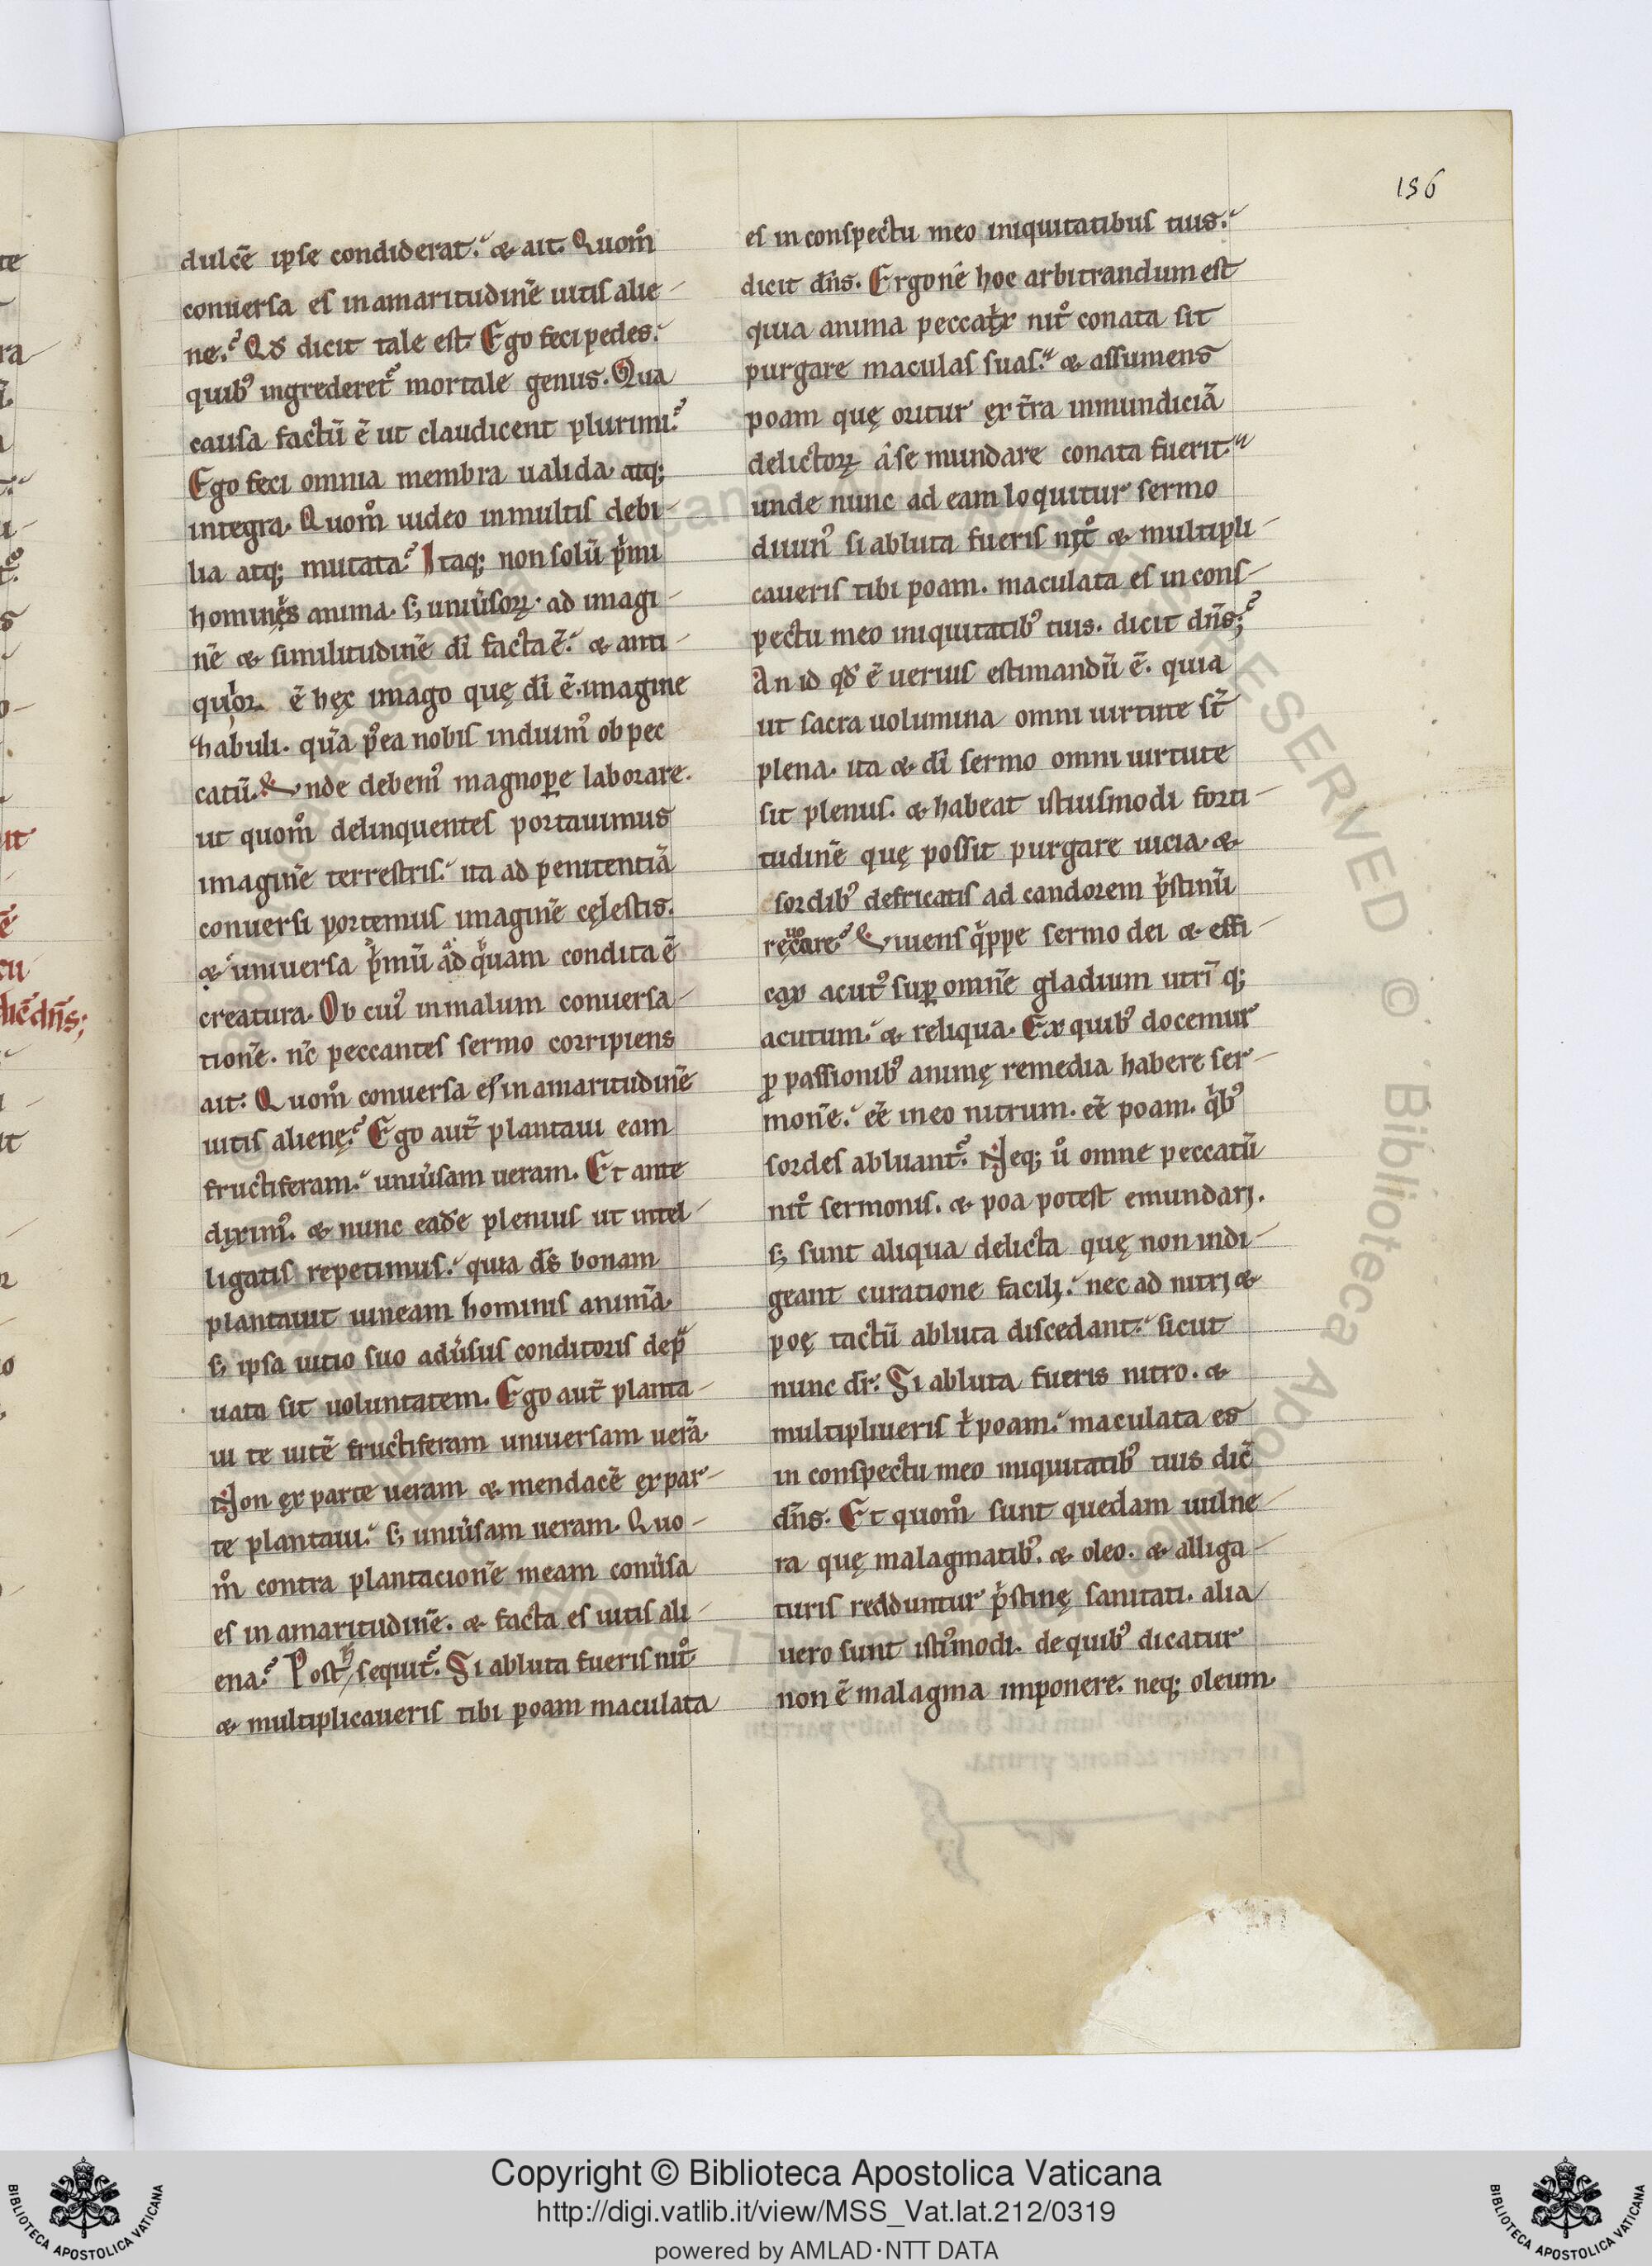 156
dulcē ipse condiderat. & ait. Quom̊
conuersa es in amaritudinē uitis alie-
ne? Qđ dicit tale est. Ego feci pedes.
quibꝰ ingrederet᷑ mortale genus. Qua
causa factū ē ut claudicent plurimi?
Ego feci omnia membra ualida atq;
integra. Quom̊ uideo in multis debi-
lia atq; mutata? Itaq; non solū pͥmi
hominis anima. s; uniūsoꝝ. ad imagi-
nē & similitudinē di̅ facta ē. & anti-
quior ē hęc imago quę di̅ ē. imagine
habuli. quā pꝰea nobis induimꝰ ob pec
catū. Unde debemꝰ magnopere laborare.
ut quom̊ delinquentes portauimus
imaginē terrestris. ita ad penitentiā
conuersi portemus imaginē cęlestis.
& uniuersa pͥmū ad quam condita ē
creatura. Ob cuiꝰ in malum conuersa-
tionē. nc̄ peccantes sermo corripiens
ait. Quom̊ conuersa es in amaritudinē
uitis alienę? Ego aut̄ plantaui eam
fructiferam. uniūsam ueram. Et ante
diximꝰ. & nunc eadē plenius ut intel-
ligatis repetimus. quia dś bonam
plantauit uineam hominis animā.
s; ipsa uitio suo adūsus conditoris dep̄
uata sit uoluntatem. Ego aut̄ planta-
ui te uitē fructiferam uniuersam uerā.
Non ex parte ueram & mendacē ex par-
te plantaui. s; uniūsam ueram. Quo-
m̊ contra plantacionē meam conūsa
es in amaritudinē. & facta es uitis ali-
ena? Post h̄ sequit᷑. Si abluta fueris nit̊
& multiplicaueris tibi poam maculata
es in conspectu meo iniquitatibus tuis.
dicit dn̄s. Ergone hoc arbitrandum est
quia anima peccatͥx nit̊ conata sit
purgare maculas suas. & assumens
poam quę oritur ex t̄ra inmundiciā
delictoꝝ a se mundare conata fuerit.
unde nunc ad eam loquitur sermo
diuinꝰ si abluta fueris nit̊ & multipli-
caueris tibi poam. maculata es in cons-
pectu meo iniquitatibꝰ tuis. dicit dn̄s;
An id qđ ē uerius estimandū ē. quia
ut sacra uolumina omni uirtute st̄
plena. ita & di̅ sermo omni uirtute
sit plenus. & habeat istiusmodi forti-
tudinē quę possit purgare uicia &
sordibꝰ defricatis ad candorem pͥstinū
reuocare? Viuens qͥppe sermo dei & effi-
cax acutꝰ suꝑ omnē gladium utrī q;
acutum. & reliqua. Ex quibꝰ docemur
ꝓ passionibꝰ animę remedia habere ser-
monē. eē in eo nitrum. eē poam. qͥbꝰ
sordes abluant᷑. Neq; ů omne peccatū
nit̊ sermonis. & poa potest emundari.
s; sunt aliqua delicta quę non indi-
geant curatione facili. nec ad nitri &
poę tactū abluta discedant. sicut
nunc dr̄. Si abluta fueris nitro. &
multipliueris tͥ poam. maculata es
in conspectu meo iniquitatibꝰ tuis dic̄
dn̄s. Et quom̊ sunt quedam uulne-
ra quę malagmatibꝰ. & oleo. & alliga-
turis redduntur pͥstinę sanitati. alia
uero sunt istꝰmodi. de quibꝰ dicatur
non ē malagma imponere. neq; oleum.
Copyright © Biblioteca Apostolica Vaticana
http://digi.vatlib.it/view/MSS_Vat.lat.212/0319
powered by AMLAD·NTT DATA
BIBLIOTECA APOSTOLICA VATICANA
BIBLIOTECA APOSTOLICA VATICANA